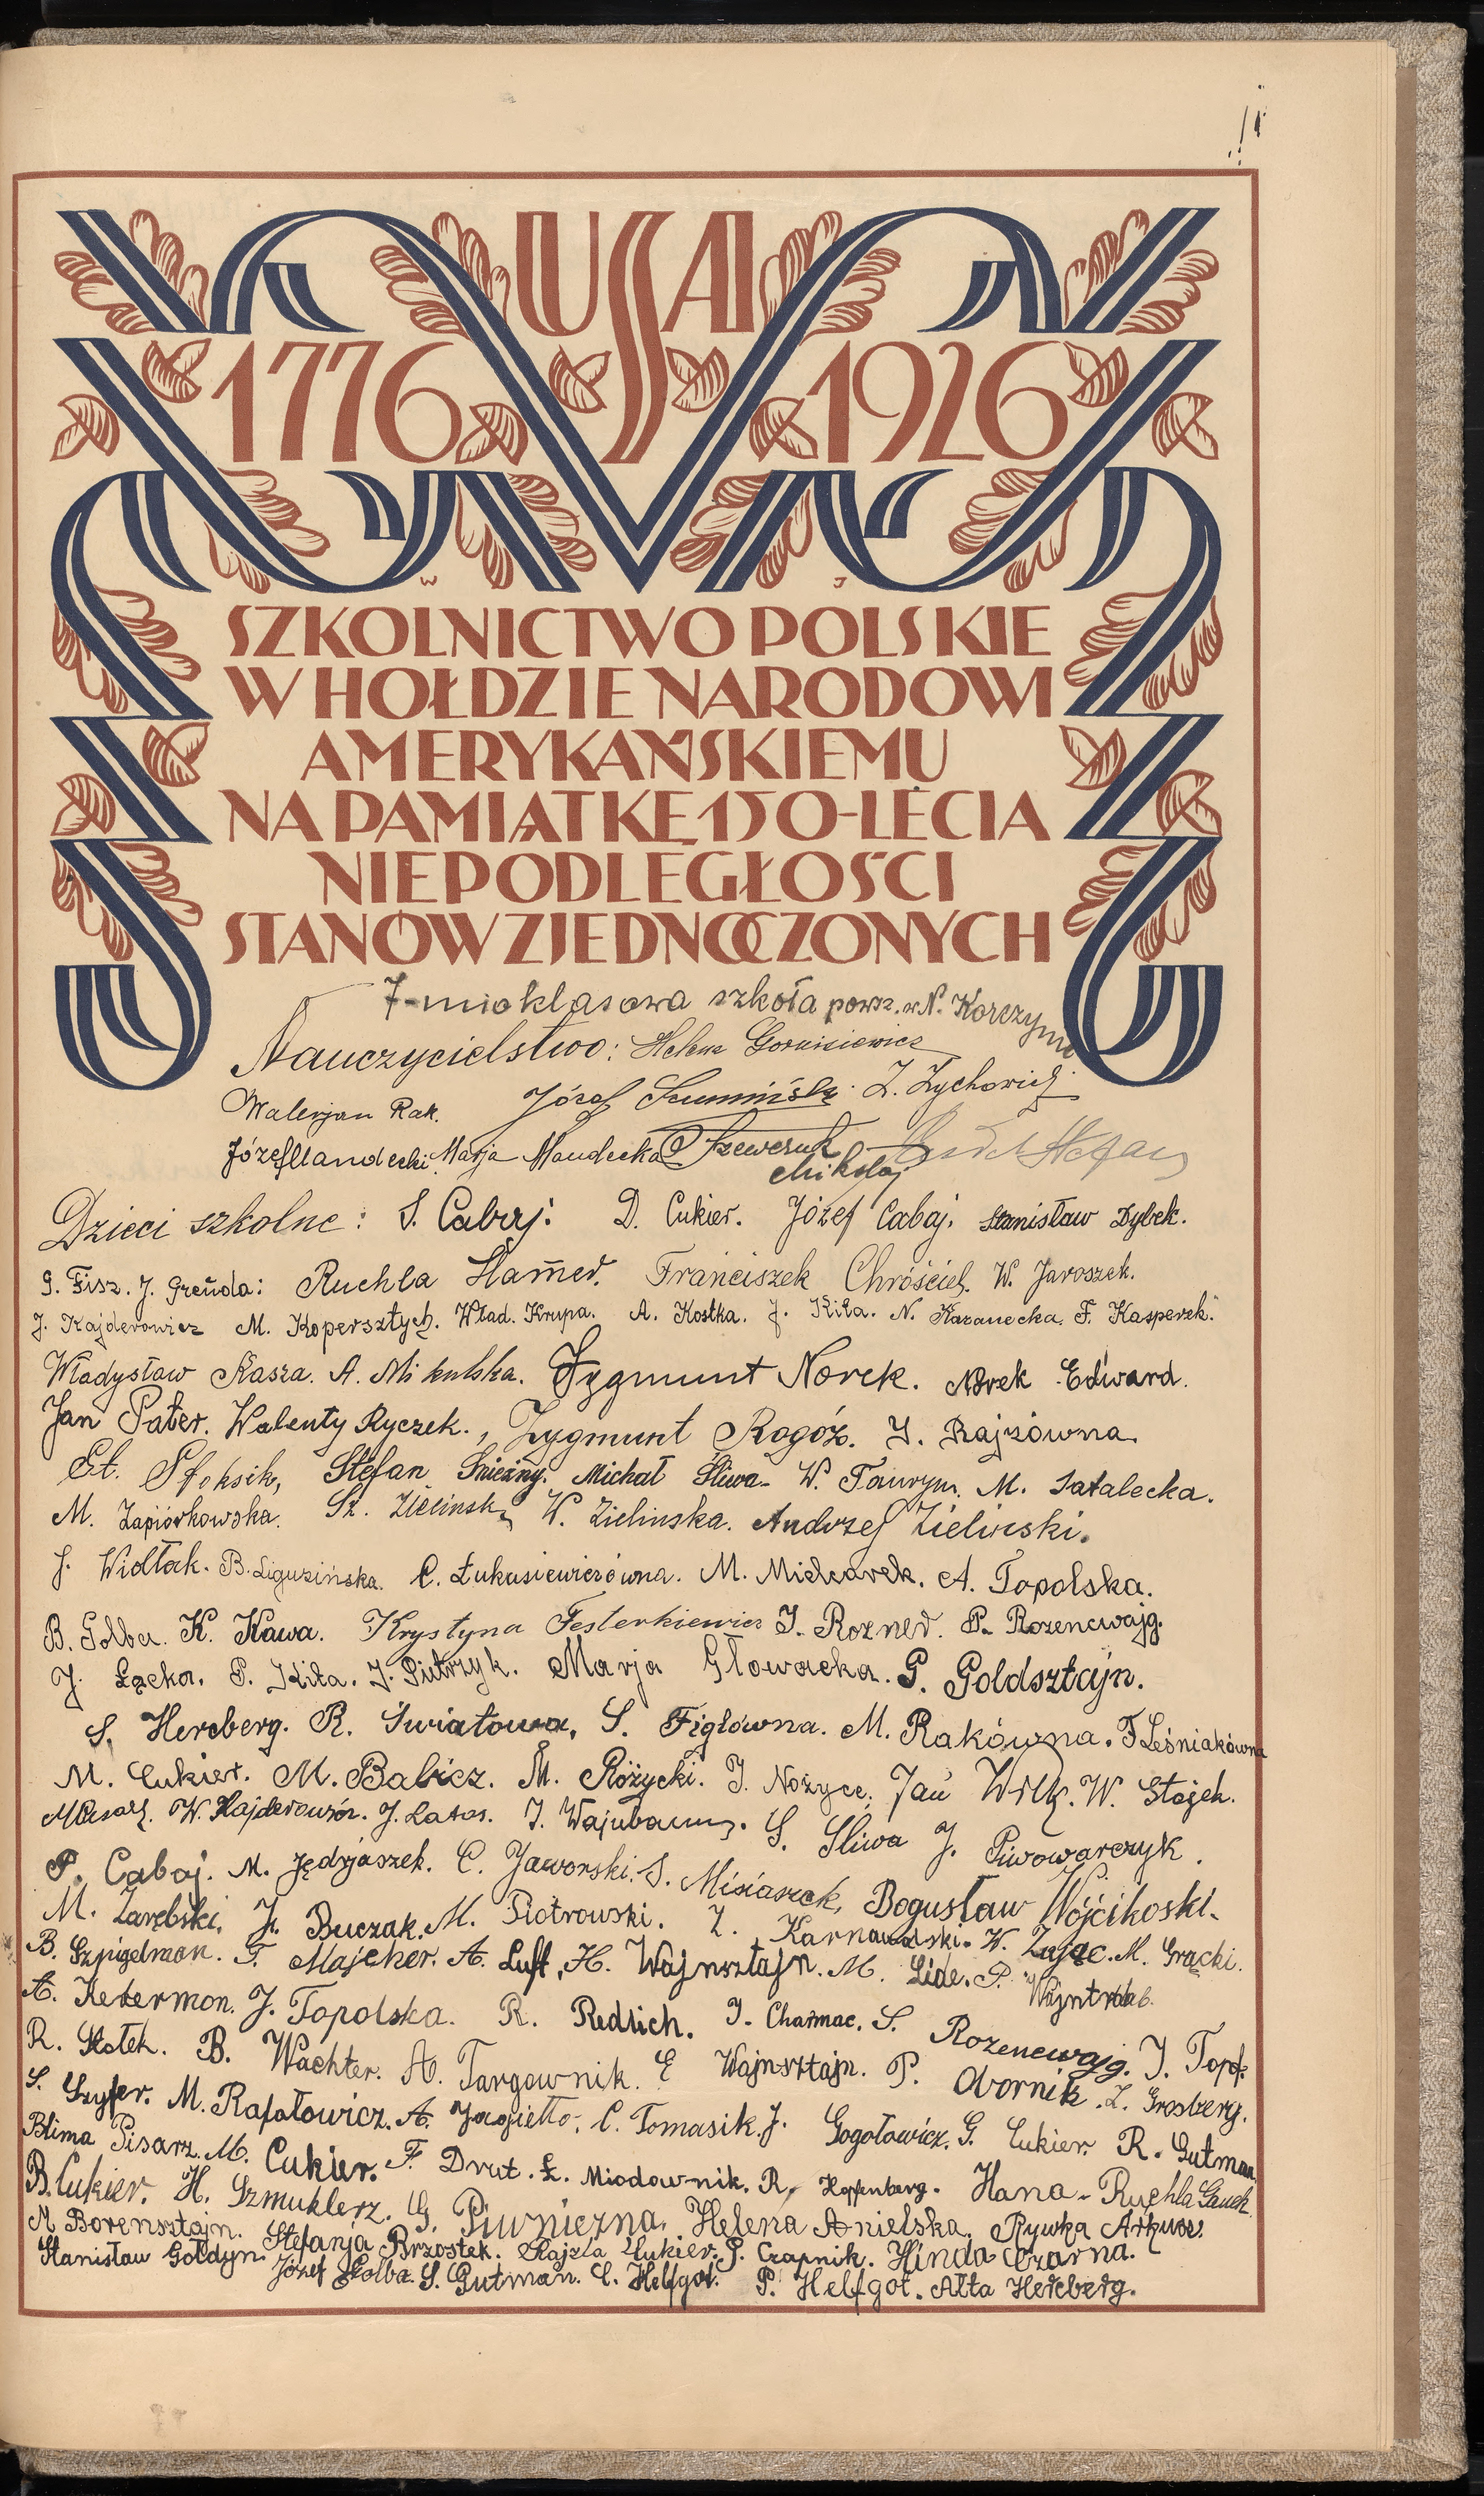 USA
1776 1926
W J
SZKOLNICTWO POLSKIE
W HOŁDZIE NARODOWI
AMERYKAŃSKIEMU
NA PAMIĄTKĘ 150-LECIA
NIEPODLEGŁOŚCI
STANÓW ZJEDNOCZONYCH
7-mio klasowa szkoła powsz. w N. Korczynie
Nauczycielstwo: Helena Gornisiewicz
Walerjan Rak. Józef Z. Zychowicz
Józef Mandecki Marja Mandecka Szewczuk Mikołaj Stefan
Dzieci szkolne: S. Cabaj: D. Cukier. Józef Cabaj. Stanisław Dybek.
G. Fisz. J. Greńda: Ruchla Hamer. Franciszek Chróściel. W. Jaroszek.
J. Kajderowicz M. Kopersztych. Wład. Krupa. A. Kostka. J. Kiła. N. Kazanecka. F. Kasperek.
Władysław Kasza. A. Mikulska. Zygmunt Norek. Norek Edward.
Jan Pater. Walenty Ryczek., Zygmunt Rogóż. J. Rajzówna.
St. Stoksik, Stefan Śnieżny. Michał Śliwa. W. Tauryn. M. Satalecka.
M. Zapiórkowska. St. Zielinska W. Zielinska. Andrzej Zieliński.
J. Widłak. B. Liguzińska. C. Łukasiewiczówna. M. Miekarek. A. Topolska.
B. Golba. K. Kawa. Krystyna Festerkiewicz J. Rozner. P. Rozencwajg.
J. Łącka. P. Kiła. J. Pietrzyk. Marja Głowacka. G. Goldsztajn.
S. Hercberg. R. Światowa, S. Figlówna. M. Rakówna. F Leśniakówna
M. Cukier. M. Babicz. M. Różycki. J. Nożyce. Jan Wilk. W. Stojek.
M Pisarz. W. Kajderowicz. J. Latos. J. Wajnbaum. S. Śliwa J. Piwowarczyk.
P. Cabaj. M. Jędrjaszek. C. Jaworski. S. Misiaszek, Bogusław Wójcikoski.
M. Zarębski, J. Buczak. M. Piotrowski. Z. Karnawalski. W. Zając. M. Grącki.
B. Szpigelman. T. Majcher. A. Luft, H. Wajnsztajn. M. Lide. P. Wajntraub.
A. Keterman. J. Topolska. R. Redlich. J. Charmac. S. Rozencwajg. J. Topol.
R. Stołek. B. Wachter. A. Targownik. E Wajnsztajn. P. Obornik. Z. Grosberg.
S. Szyfer. M. Rafałowicz. A. Jagiełło. C. Tomasik. J. Gogołowicz. G. Cukier. R. Gutman
Blima Pisarz. M. Cukier. F. Drut. Ł. Miodownik. R. Kopfenberg. Hana-Ruchla Gauch.
B. Cukier. H. Szmuklerz. G. Piwniczna. Helena Anielska. Rywka Arkusz.
M. Borensztajn. Stefanja Brzostek. Rajzla Cukier. P. Czapnik. Hinda Czarna.
Stanisław Gołdyn. Józef Golba. S. Gutman. C. Helfgot. P. Helfgot. Ałta Hercberg.